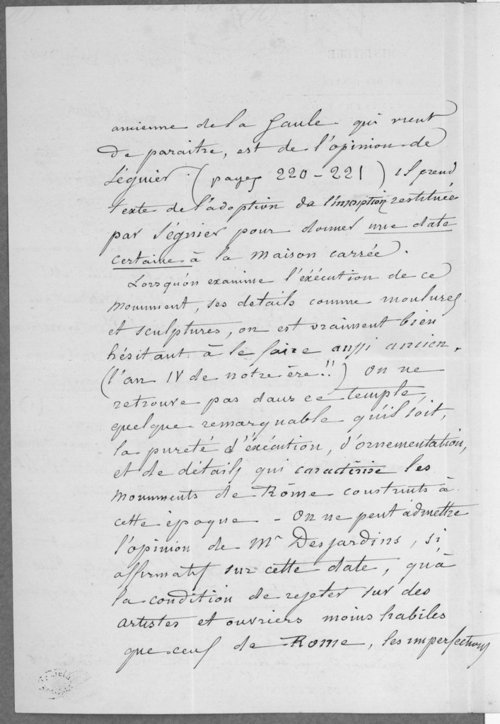 ancienne de la Gaule qui vient
de paraitre, est de l'opinion de
Séguier. (pages 220-221) il prend
texte de l'adoption de l'inscription restituée
par Séguier pour donner une date
certaine à la maison carrée.
Lorsqu'on examine l'éxécution de ce
monument, ses details comme moulures
et sculptures, on est vraiment bien
hésitant à le faire aussi ancien.
(l'an IV de nôtre ère!!) On ne
retrouve pas dans ce temple,
quelque remarquable qu'il soit,
la pureté d'éxécution, d'ornementation,
et de détails qui caractérise les
monuments de Rome construits à
cette époque - On ne peut admettre
l'opinion de Mr Desjardins, si
affirmatif sur cette date, qu'à
la condition de rejeter sur des
artistes et ouvriers moins habiles
que ceux de Rome, les imperfections